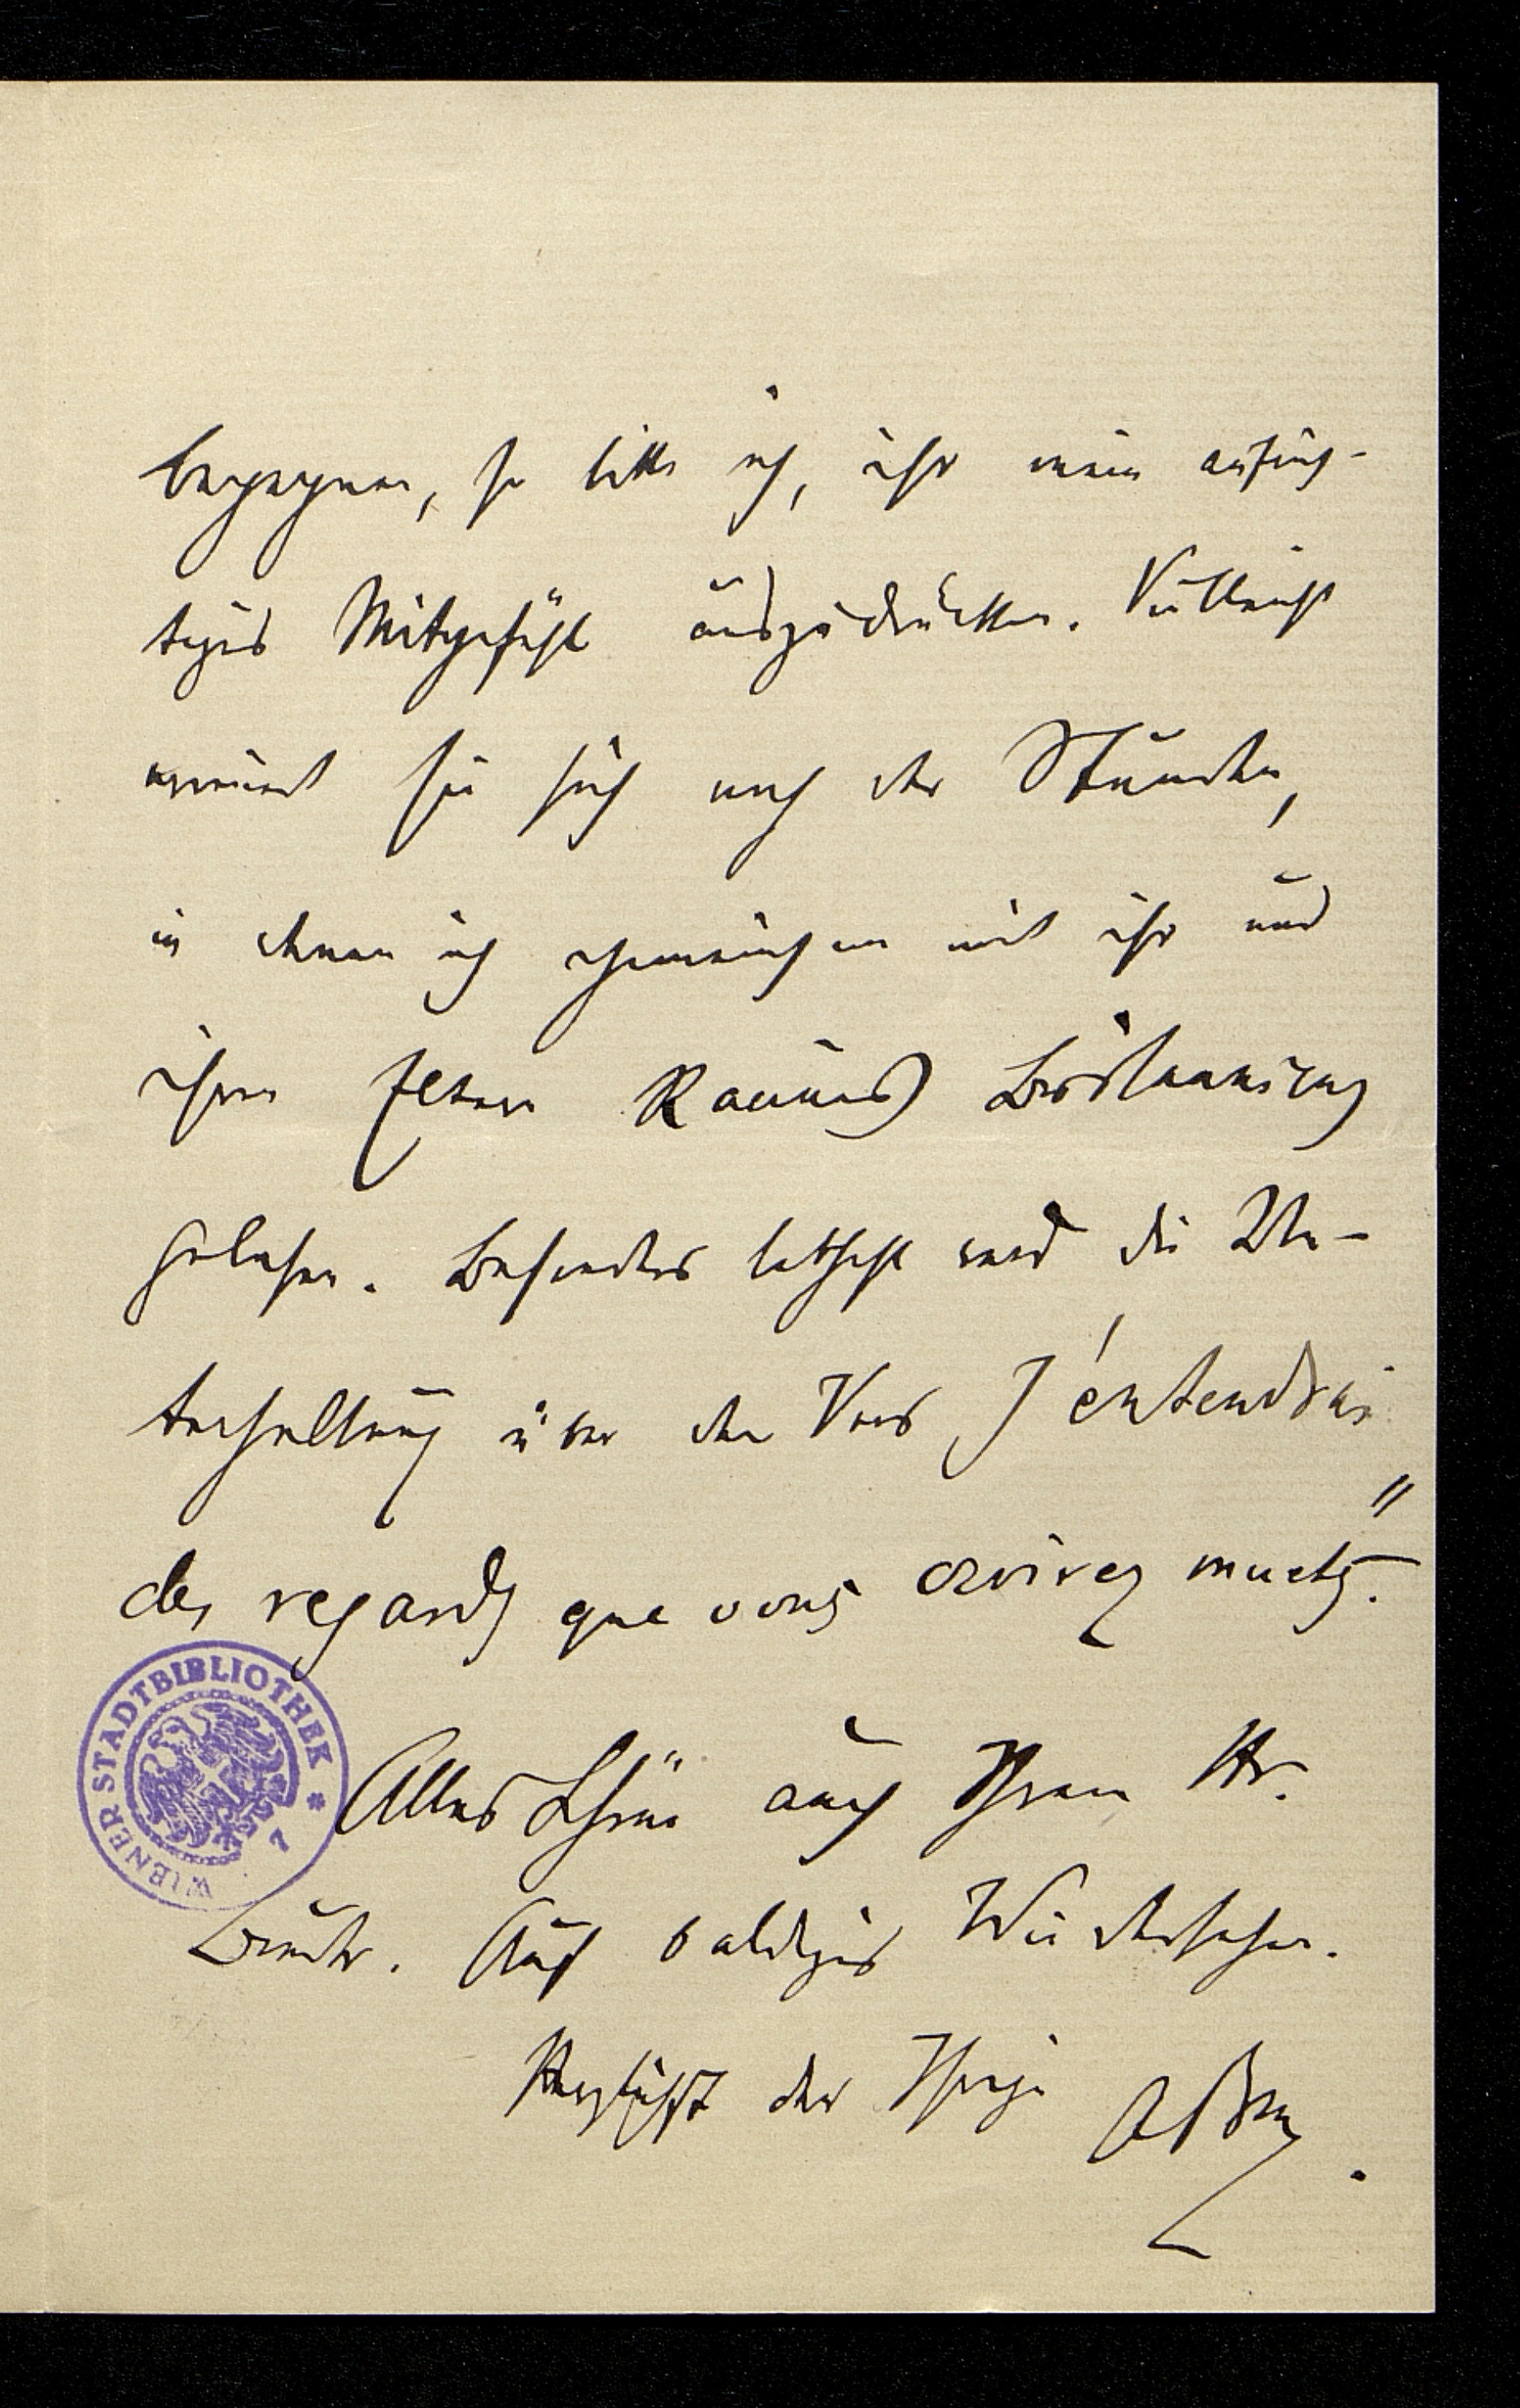 begegnen, so bitte ich, ihr mein aufrich-
tiges Mitgefühl auszudrücken. Vielleicht
erinnert sie sich noch der Stunden,
in denen ich gemeinsam mit ihr und
ihren Eltern Racines Britannicus
gelesen. Besonders lebhaft ward die Un-
terhaltung über den Vers J'entendrai
des regards que vous croirez muets."
Alles Schöne auch Ihrem Hr.
Bruder. Auf baldiges Wiedersehen.
Herzlichst der Ihrige
WIENER STADTBIBLIOTHEK * 7